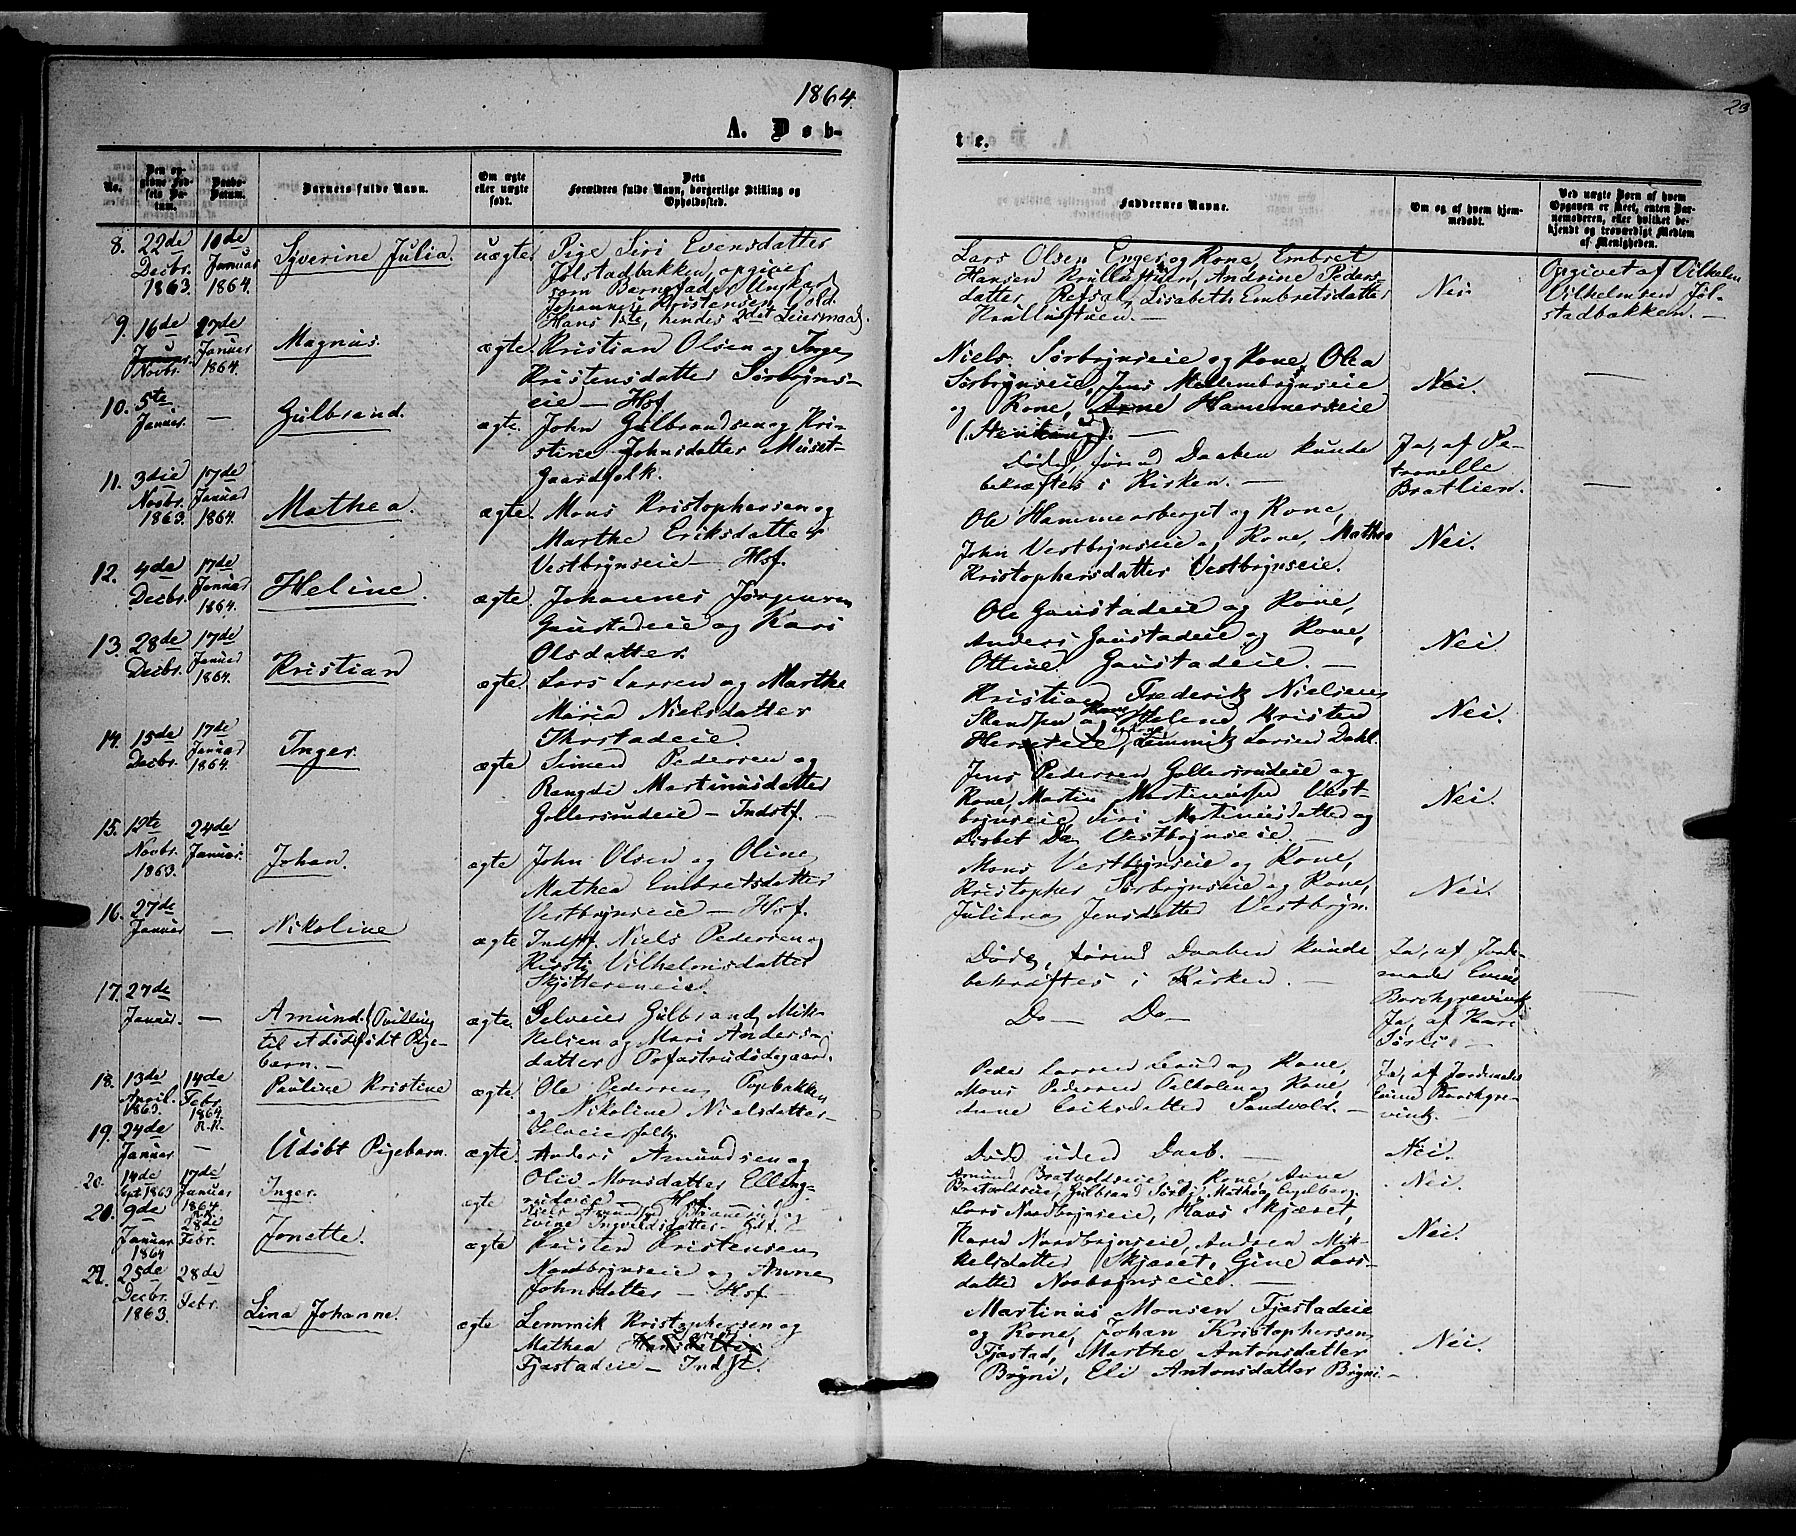 1864.
23
A. Døb-
te.
No.
Den op-
givne Fød-
sels Da-
tum.
Daabs-
Datum.
Barnets fulde Navn.
Om ægte
eller uægte
født.
Dets
Forældres fulde Navn, borgerlige Stilling og
Opholdssted.
Faddernes Navne.
Om og af hvem hjem-
medøbt.
Ved uægte Børn af hvem
Opgaven er skeet, enten Bar-
nemoderen, eller hvilket be-
kjendt og troværdigt Medlem
af Menigheden.
8. 22de Decbr. 1863
10de Januar 1864.
Syverine Julia.
uægte
Pige Siri Evensdatter
Jølstadbakken, opgiver
som Barnefader Ungkarl
Johannes Kristensen
Hans 1ste, hendes 2det Leiermaal.
Lars Olsen Enger og Kone, Embret
Hansen Krullustuen, Andrine Peders-
datter Refsal, Lisabeth Embretsdatter
Krullustuen. —
Nei.
Opgivet af Vilhelm
Vilhelmsen Jøl-
stadbakken. —
9. 16de Januar. Novbr.
17de Januar 1864.
Magnus.
ægte
Kristian Olsen og Inger
Kristensdatter Sørbryns-
eie — Hsf.
Niels Sørbrynseie og Kone, Olea
Sørbrynseie, Jens Mellembrynseie
og Kone, Arne Hammerseie
Nei.
—
10. 5te Januar.
—
Gulbrand.
ægte.
John Gulbrandsen og Kri-
stine Johnsdatter Muset-
Gaardfolk.
Døde, førend Daaben kunde
bekræftes i Kirken. —
Ja, af Pe-
tronelle
Bratlien.
—
11. 3die Novbr. 1863.
17de Januar 1864.
Mathea.
ægte.
Mons Kristophersen og
Marthe Eriksdatter
Vestbrynseie — Hsf.
Ole Hammersberget og Kone,
John Vestbrynseie og Kone, Mathea
Kristophersdatter Vestbrynseie.
Nei.
12. 4de Decbr.
17de Januar 1864.
Heline.
ægte.
Johannes Jørgensen
Gaustadeie og Kari
Olsdatter.
Ole Gaustadeie og Kone,
Anders Gaustadeie og Kone,
Ottine Gaustadeie. —
Nei.
13. 28de Decbr.
17de Januar 1864.
Kristian
ægte.
Lars Larsen og Marthe
Maria Nielsdatter
Thostadeie.
Kristian Frederik Nielsen
og Helene Kristen
Lemmik Larsen Dahl.
Nei.
14. 15de Decbr.
17de Januar 1864.
Inger.
ægte
Simen Pedersen og
Rangdi Martinusdatter
Gollersrudeie — Indstf. —
Jens Pedersen Gollersrudeie og
Kone, Martin Martinussen Vest-
brynseie, Siri Martinusdatter og
Lisbet Do Vestbrynseie. —
Nei.
15. 12te Novbr. 1863.
24de Januar.
Johan.
ægte
John Olsen og Oline
Mathea Embretsdatter
Vestbrynseie — Hsf.
Mons Vestbrynseie og Kone,
Kristopher Sørbrynseie og Kone,
Juliana Jensdatter Vestbryn.
Nei.
16. 27de Januar
—
Nikoline
ægte
Indstf. Niels Pedersen og
Kersti Vilhelmsdatter
Skjøttereneie.
Døde, førend Daaben kunde
bekræftes i Kirken. —
Ja, af Jorde-
moder Evine
Borchgrevink
—
17. 27de Januar.
—
Amund. (Tvilling
til et dødfødt Pige-
barn. —
ægte.
Selveier Gulbrand Mik-
kelsen og Mari Anders-
datter Prestrudødegaard.
Do — Do —
Ja, af Kari
Sørlie —
18. 13de April. 1863.
14de Febr. 1864. R.K.
Pauline Kristine
ægte.
Ole Pedersen Popbakken
og Nikoline Nielsdatter
Selveierfolk.
Peder Larsen Lund og Kone,
Mons Pedersen og Kone,
Anne Eriksdatter Sandvold. —
Ja, af Jordemoder
Evine Borchgre-
vink.
19. 24de Januar
—
Udøbt Pigebarn.
ægte.
Anders Amundsen og
Oliv Monsdatter Elling-
rudeie — Hsf.
Død uden Daab. —
Nei.
20. 14de Sept 1863
17de Januar 1864. R.K.
Inger.
ægte
Evine Ingvaldsdatter
Amund Bratvoldseie og Kone, Anne
Bratvoldseie, Gulbrand Sørli, Mathea Engelberg.
Nei.
20. 9de Januar 1864
28de Febr.
Jonette.
ægte
Kristen Kristensen
Nordbrynseie og Anne
Johnsdatter — Hsf. —
Lars Nordbrynseie, Hans Skjæret,
Karen Nordbrynseie, Andrea Mik-
kelsdatter Skjæret, Gine Lars-
datter Nordbrynseie. —
Nei.
21. 25de Decbr. 1863.
28de Febr.
Lina Johanne.
ægte
Lemmik Kristophersen og
Mathea Hansdatter
Fjæstadeie — Indst.
Martinus Monsen Fjæstadeie
og Kone, Johan Kristophersen
Fjæstad, Marthe Antonsdatter
Bryni, Eli Antonsdatter Bryni. —
Nei.